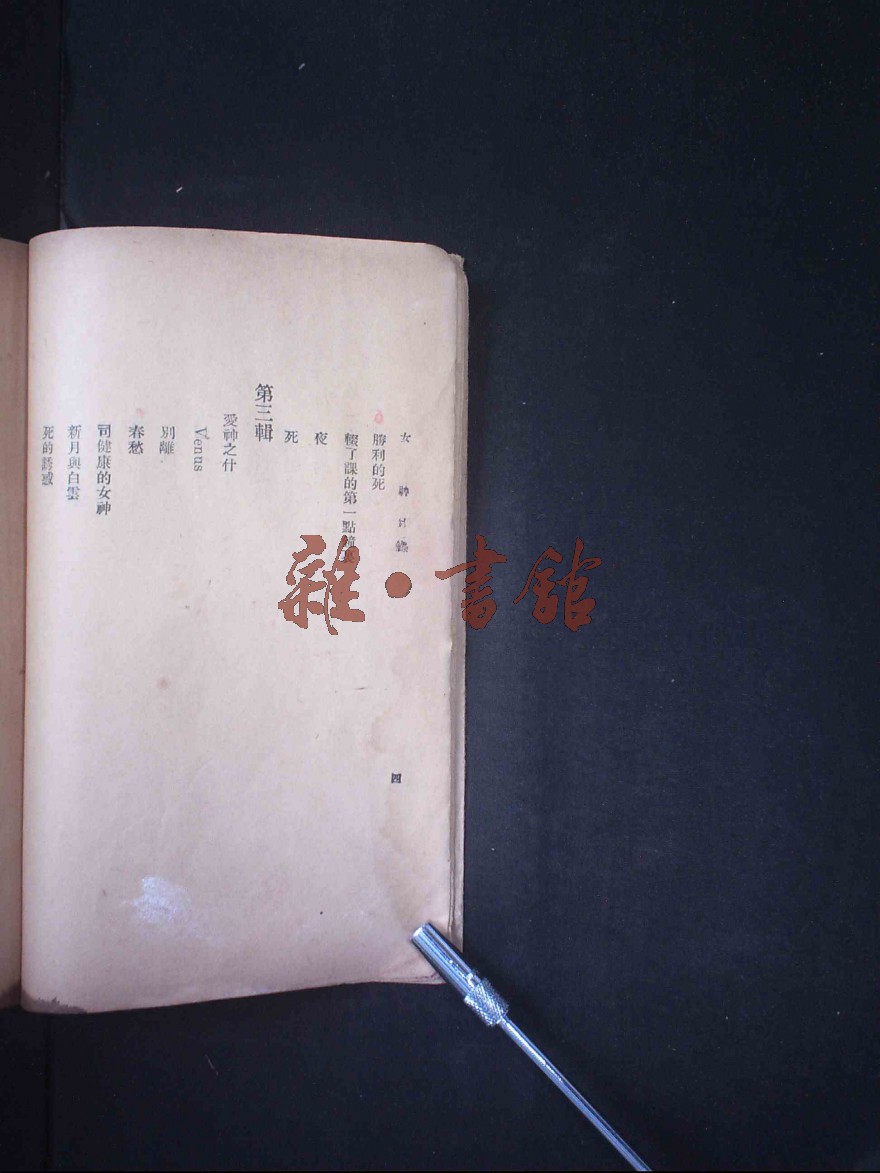 女神目錄
四
勝利的死
輟了課的第一點鐘裏
夜
死
第三輯
愛神之什
Venus
別離
春愁
司健康的女神
新月與白雲
死的誘惑
雜·書館